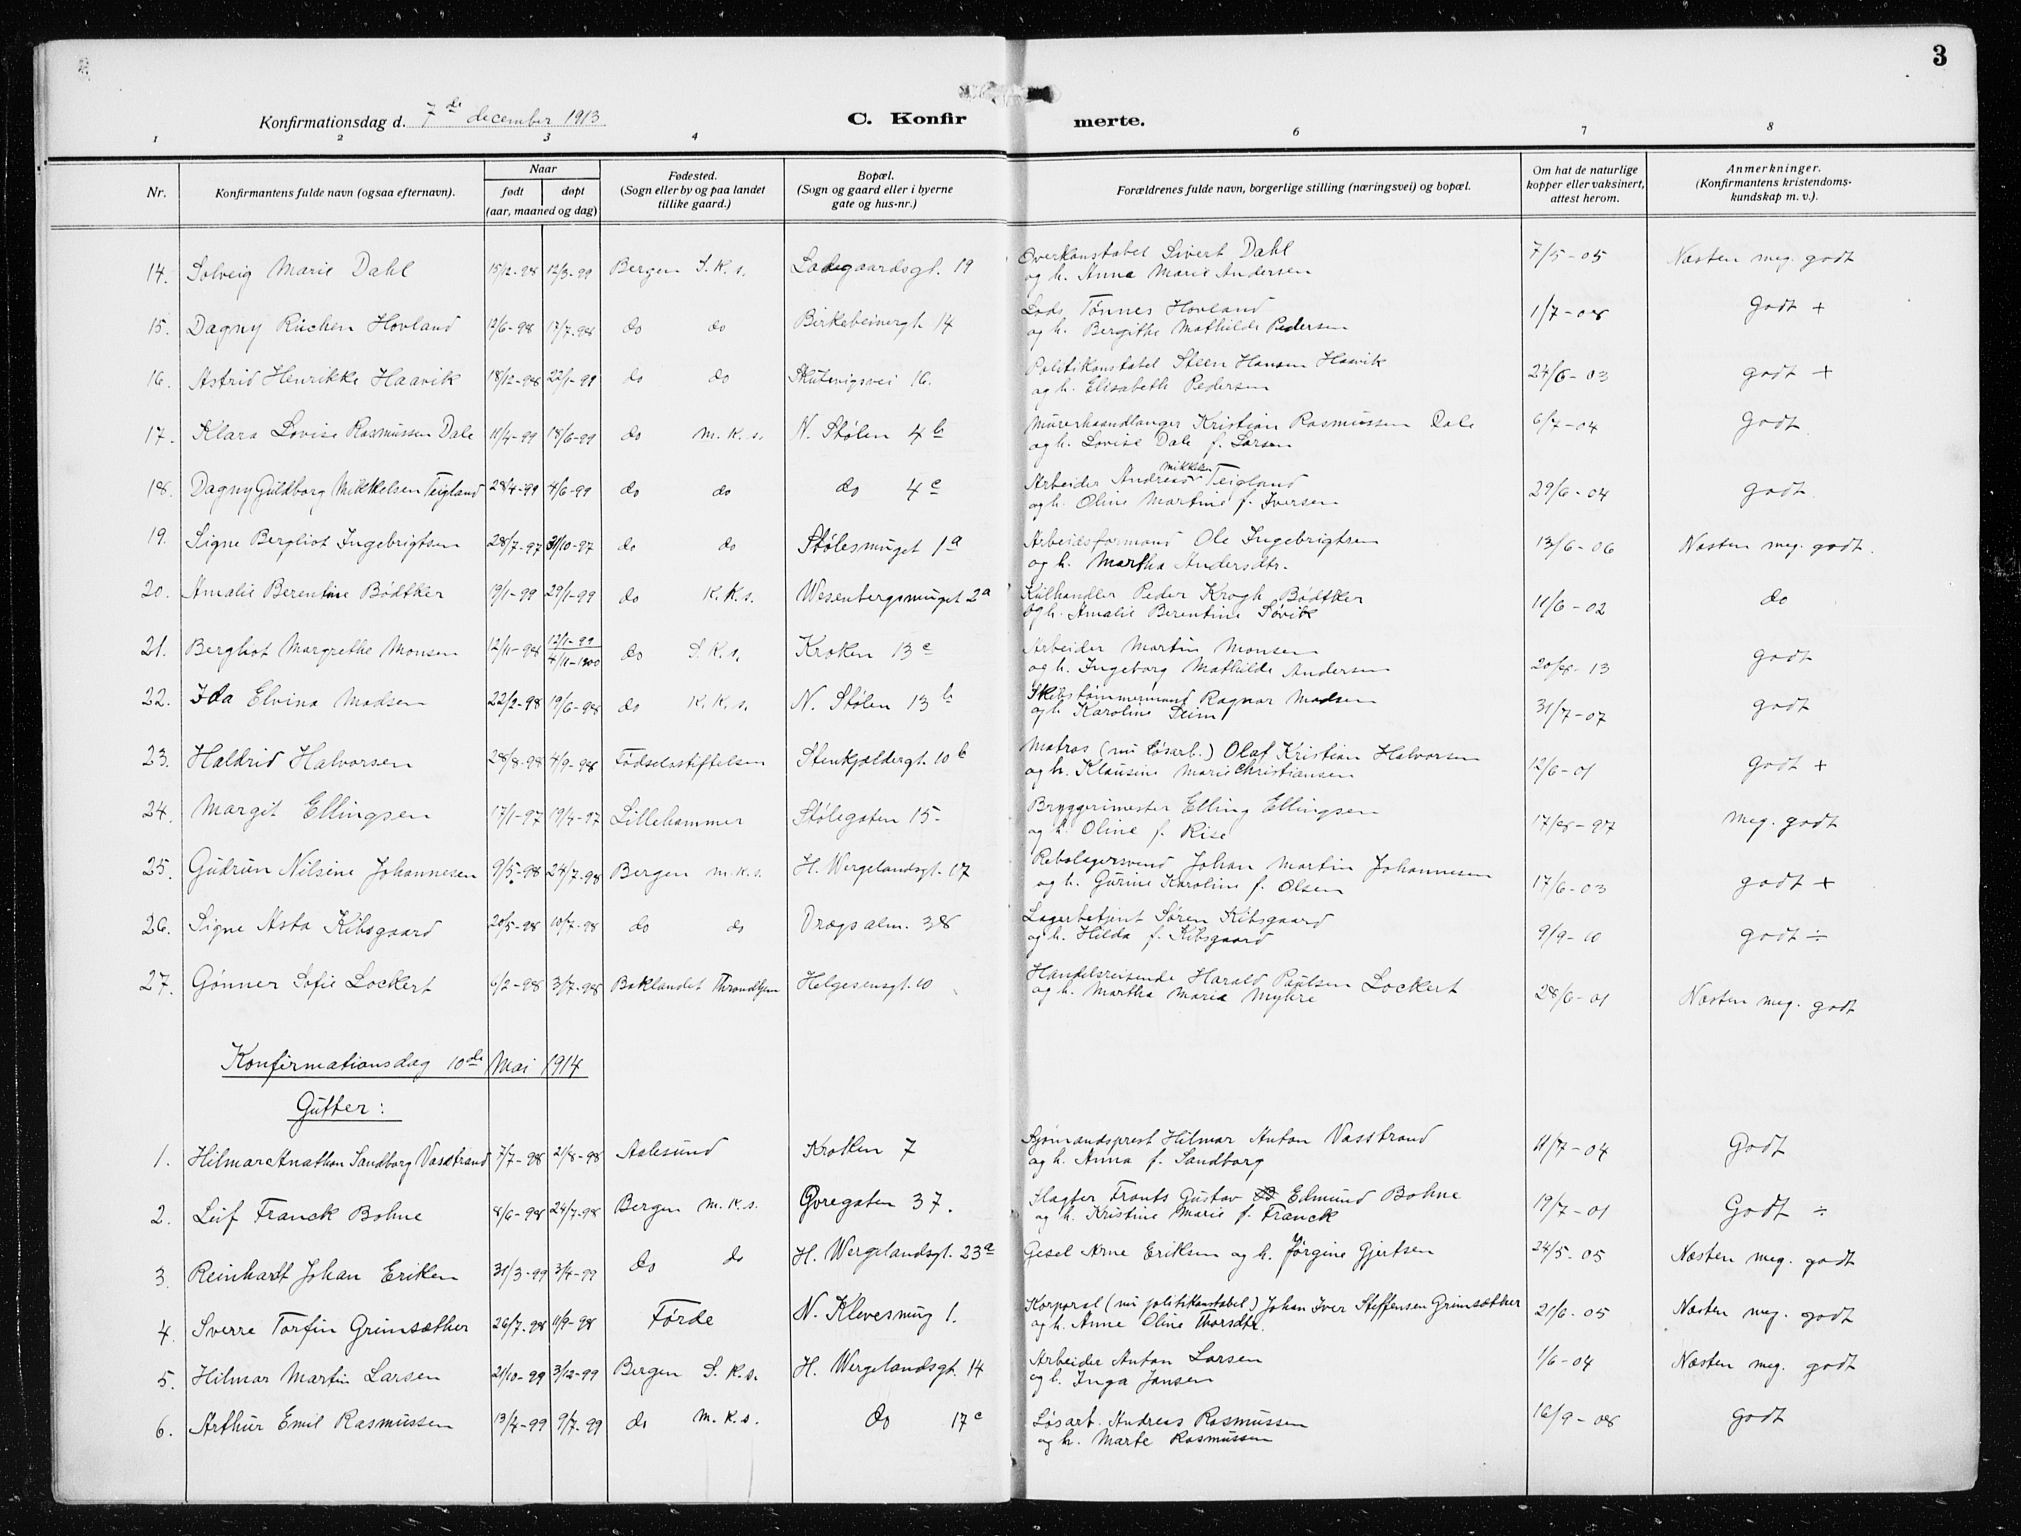 3
Konfirmationsdag d. 7de december 1913
C. Konfir merte.
1 2 3 4 6 7 8
Nr. Konfirmantens fulde navn (ogsaa efternavn). Naar født døpt (aar, maaned og dag) Fødested. (Sogn eller by og paa landet tillike gaard.) Bopæl. (Sogn og gaard eller i byerne gate og hus-nr.) Forældrenes fulde navn, borgerlige stilling (næringsvei) og bopæl. Om hat de naturlige kopper eller vaksinert, attest herom. Anmerkninger. (Konfirmantens kristendomskundskap m. v.).
14. Solveig Marie Dahl 15/12-98 12/3-99 Bergen S.K.s. Ladegaardsgt. 19 Overkonstabel Sivert Dahl 7/5-05 Næsten meg. godt
og h. Anna Marie Andersen
15. Dagny Rüchen Hovland 12/6-98 17/7-98 do do Birkebeinergt. 14 Lods Tønnes Hovland 1/7-08 Godt +
og h. Bergithe Mathilde Pedersen
16. Astrid Henrikke Haavik 18/12-98 22/1-99 do do Skutevigsvei 16. Politikonstabel Steen Hansen Haavik 24/6-03 godt +
og h. Elisabeth Pedersen
17. Klara Lovise Rasmussen Dale 11/4-99 18/6-99 do m.K.s. N. Stølen 4b Murerhaandlanger Kristian Rasmussen Dale 6/7-04 Godt.
og h. Lovise Dale f. Larsen
18. Dagny Guldborg Mikkelsen Teigland 28/4-99 4/6-99 do do do 4c Arbeider Andreas Mikkelsen Teigland 29/6-04 godt
og h. Oline Martine f. Iversen
19. Signe Bergliot Ingebrigtsen 28/7-97 31/10-97 do do Stølesmuget 1a Arbeidsformand Ole Ingebrigtsen 13/6-06 Næsten meg. godt.
og h. Martha Andersdtr.
20. Amalie Berentine Bödtker 19/1-99 29/1-99 do K.K.s. Wesenbergsmuget 2a Kulhandler Peder Krogh Bødtker 11/6-02 do
og h. Amalie Berentine Søvik
21. Bergliot Margrethe Monsen 12/11-98 12/1-99 4/11-1900 do S.K.s. Kroken 13c Arbeider Martin Monsen 20/8-13 godt
og h. Ingeborg Mathilde Andersen
22. Ida Elvina Madsen 22/2-98 19/6-98 do K.K.s. N. Stølen 13b Skibstømmermand Ragnar Madsen 31/7-07 godt
og h. Karoline Seim
23. Haldrid Halvorsen 28/8-98 4/9-98 Fødselsstiftelsen Stenkjældergt. 10b Matros (nu løsarb.) Olaf Kristian Halvorsen 12/6-01 godt +
og h. Klausine Marie Christiansen
24. Margit Ellingsen 17/1-97 19/4-97 Lillehammer Stølegaten 15 Bryggerimester Elling Ellingsen 17/8-97 meg. godt
og h. Oline f. Rise
25. Gudrun Nilsine Johannesen 9/5-98 24/7-98 Bergen m.K.s. H. Wergelandsgt. 17 Rebslagersvend Johan Martin Johannesen 17/6-03 godt +
og h. Gurine Karoline f. Olsen
26. Signe Asta Kibsgaard 20/5-98 10/7-98 do do Dragsalm. 38 Lagerbetjent Søren Kibsgaard 9/9-10 godt ÷
og h. Hilda f. Kibsgaard
27. Gønner Sofie Lockert 6/2-98 3/7-98 Baklandet Throndhjem Helgesensgt. 10 Handelsreisende Harald Paulsen Lockert 28/6-01 Næsten meg. godt
og h. Martha Maria Myhre
Konfirmationsdag 10de Mai 1914
Gutter:
1. Hilmar Anathon Sandborg Vasstrand 7/7-98 21/8-98 Aalesund Kroken 7 Sjømandsprest Hilmar Anton Vasstrand 11/7-04 Godt
og h. Anna f. Sandborg
2. Leif Franck Bohne 8/6-98 24/7-98 Bergen m.K.s. Øvregaten 37. Slagter Frants Gustav Edmund Bohne 19/7-01 Godt ÷
og h. Kristine Marie f. Franck
3. Reinhardt Johan Eriksen 31/3-99 3/4-99 do do H. Wergelandsgt. 23a Gesel Arne Eriksen og h. Jørgine Gjertsen 24/5-05 Næsten meg. godt
4. Sverre Torfin Grimsæther 26/7-98 11/9-98 Førde N. Klevesmug 1. Korporal (nu politikonstabel) Johan Iver Steffensen Grimsæther 21/6-05 Næsten meg. godt
og h. Anne Oline Thorsdtr.
5. Hilmar Martin Larsen 21/10-99 3/12-99 Bergen S.K.s. H. Wergelandsgt. 14 Arbeider Anton Larsen 1/6-04 Næsten meg. godt
og h. Inga Jansen
6. Arthur Emil Rasmussen 13/4-99 9/7-99 do m.K.s. do 17c Løsarb. Andreas Rasmussen 16/9-08 Godt
og h. Marte Rasmussen